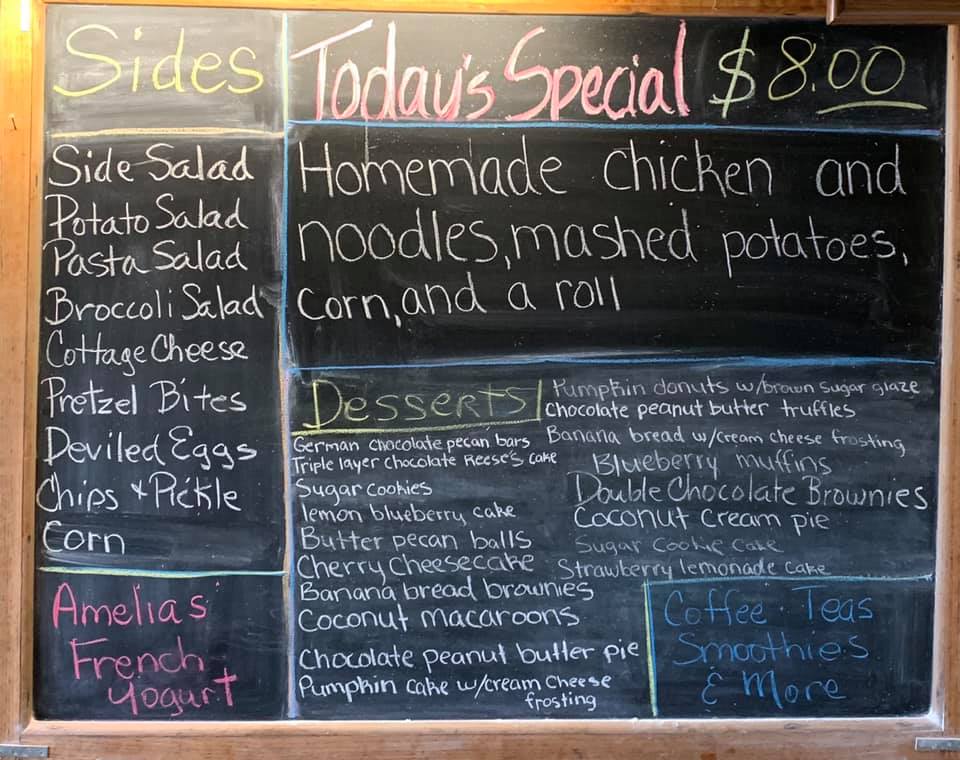 Sides
Side Salad
Potato Salad
Pasta Salad
Broccoli Salad
Cottage Cheese
Pretzel Bites
Deviled Eggs
Chips & Pickle
Corn
Amelias
French
Yogurt
Today's Special $8.00
Homemade chicken and
noodles, mashed potatoes,
corn, and a roll
Desserts
German chocolate pecan bars
Triple layer chocolate Reese's cake
Sugar cookies
lemon blueberry cake
Butter pecan balls
Cherry Cheesecake
Banana bread brownies
Coconut macaroons
Chocolate peanut butter pie
Pumpkin cake w/cream cheese
frosting
Pumpkin donuts w/brown sugar glaze
Chocolate peanut butter truffles
Banana bread w/cream cheese frosting
Blueberry muffins
Double Chocolate Brownies
Coconut cream pie
Sugar Cookie Cake
Strawberry lemonade cake
Coffee · Teas
Smoothies
& More